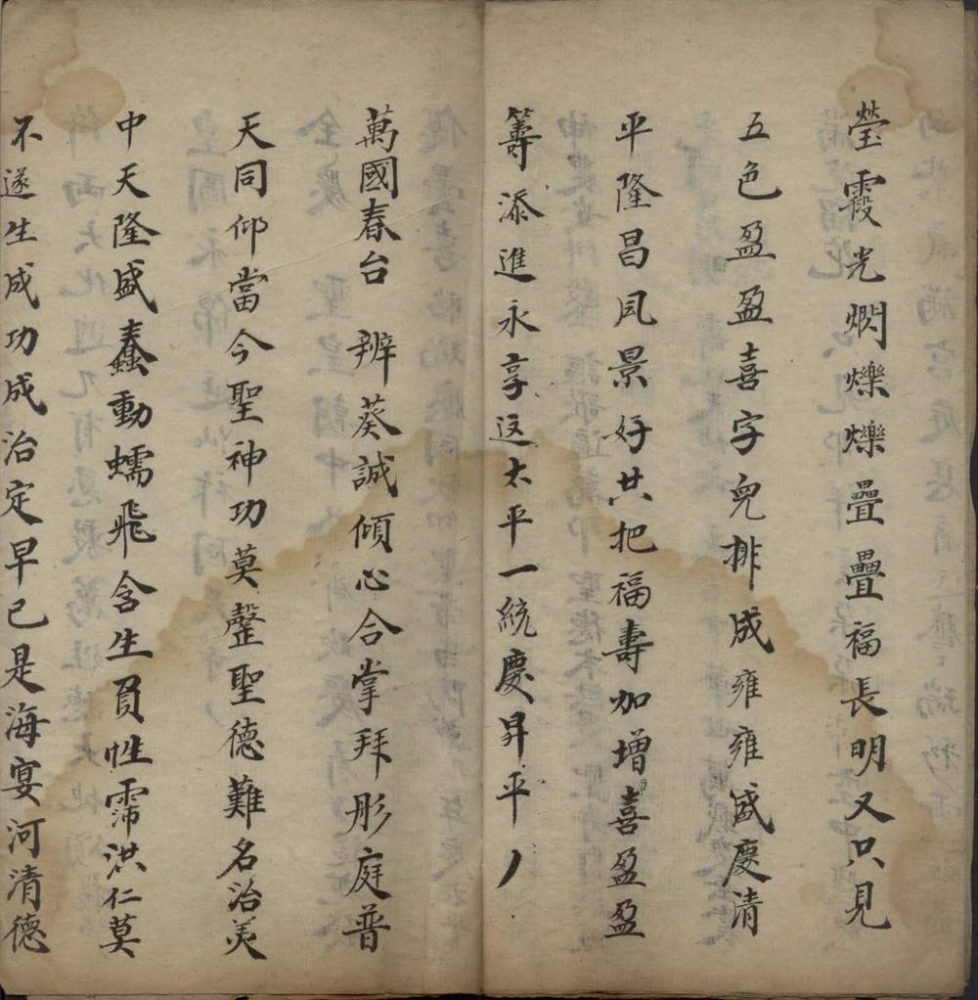 瑩霞光燜爍爍疊疊福長明又只見
五色盈盈喜字兒排成雍雍盛慶清
平隆昌風景好共把福壽加增喜盈盈
籌添進永享這太平一統慶昇平
萬國春台　辦葵誠傾心合掌拜彤庭普
天同仰當今聖神功莫罄聖德難名治美
中天隆盛蠢動蠕飛含生負性霈洪仁莫
不遂生成功成治定早已是海宴河清德